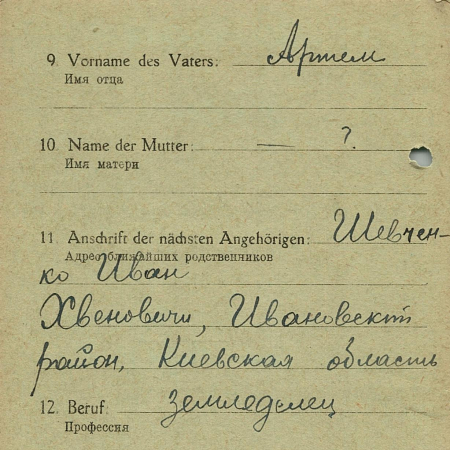 9. Vorname des Vaters: Артем
Имя отца
10. Name der Mutter: — ?
Имя матери
11. Anschrift der nächsten Angehörigen: Шевчен-
Адрес ближайших родственников
ко Иван
Хвеновичи, Ивановский
район, Киевская область
12. Beruf: земледелец
Профессия